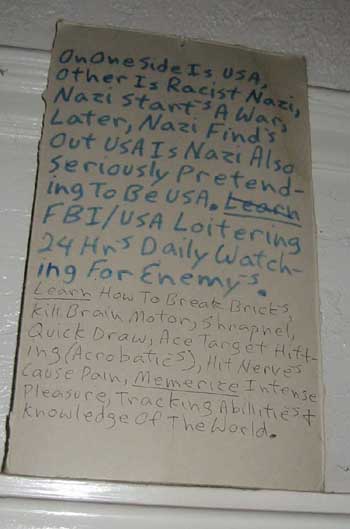 On One Side Is USA,
Other Is Racist Nazi,
Nazi Start's A War,
Later, Nazi Find's
Out USA Is Nazi Also
Seriously Pretend-
ing To Be USA. Learn
FBI/USA Loitering
24 Hr's Daily Watch-
ing For Enemy's.
Learn How To Break Bricks,
Kill Brain Motor, Shrapnel,
Quick Draw, Ace Target Hitt-
ing (Acrobatics), Hit Nerves
Cause Pain, Memerize Intense
Pleasure, Tracking Abillities +
Knowledge Of The World.